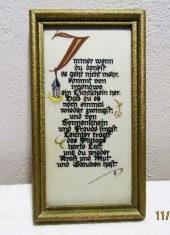 Immer wenn
du denkst
es geht nicht mehr,
kommt von
irgendwo
ein Lichtlein her.
Daß du es
noch einmal
wieder zwingst,
und von
Sonnenschein
und Freude singst.
Leichter trägst
des Alltags
harte Last
und du wieder
Kraft und Mut
und Glauben hast.
11/